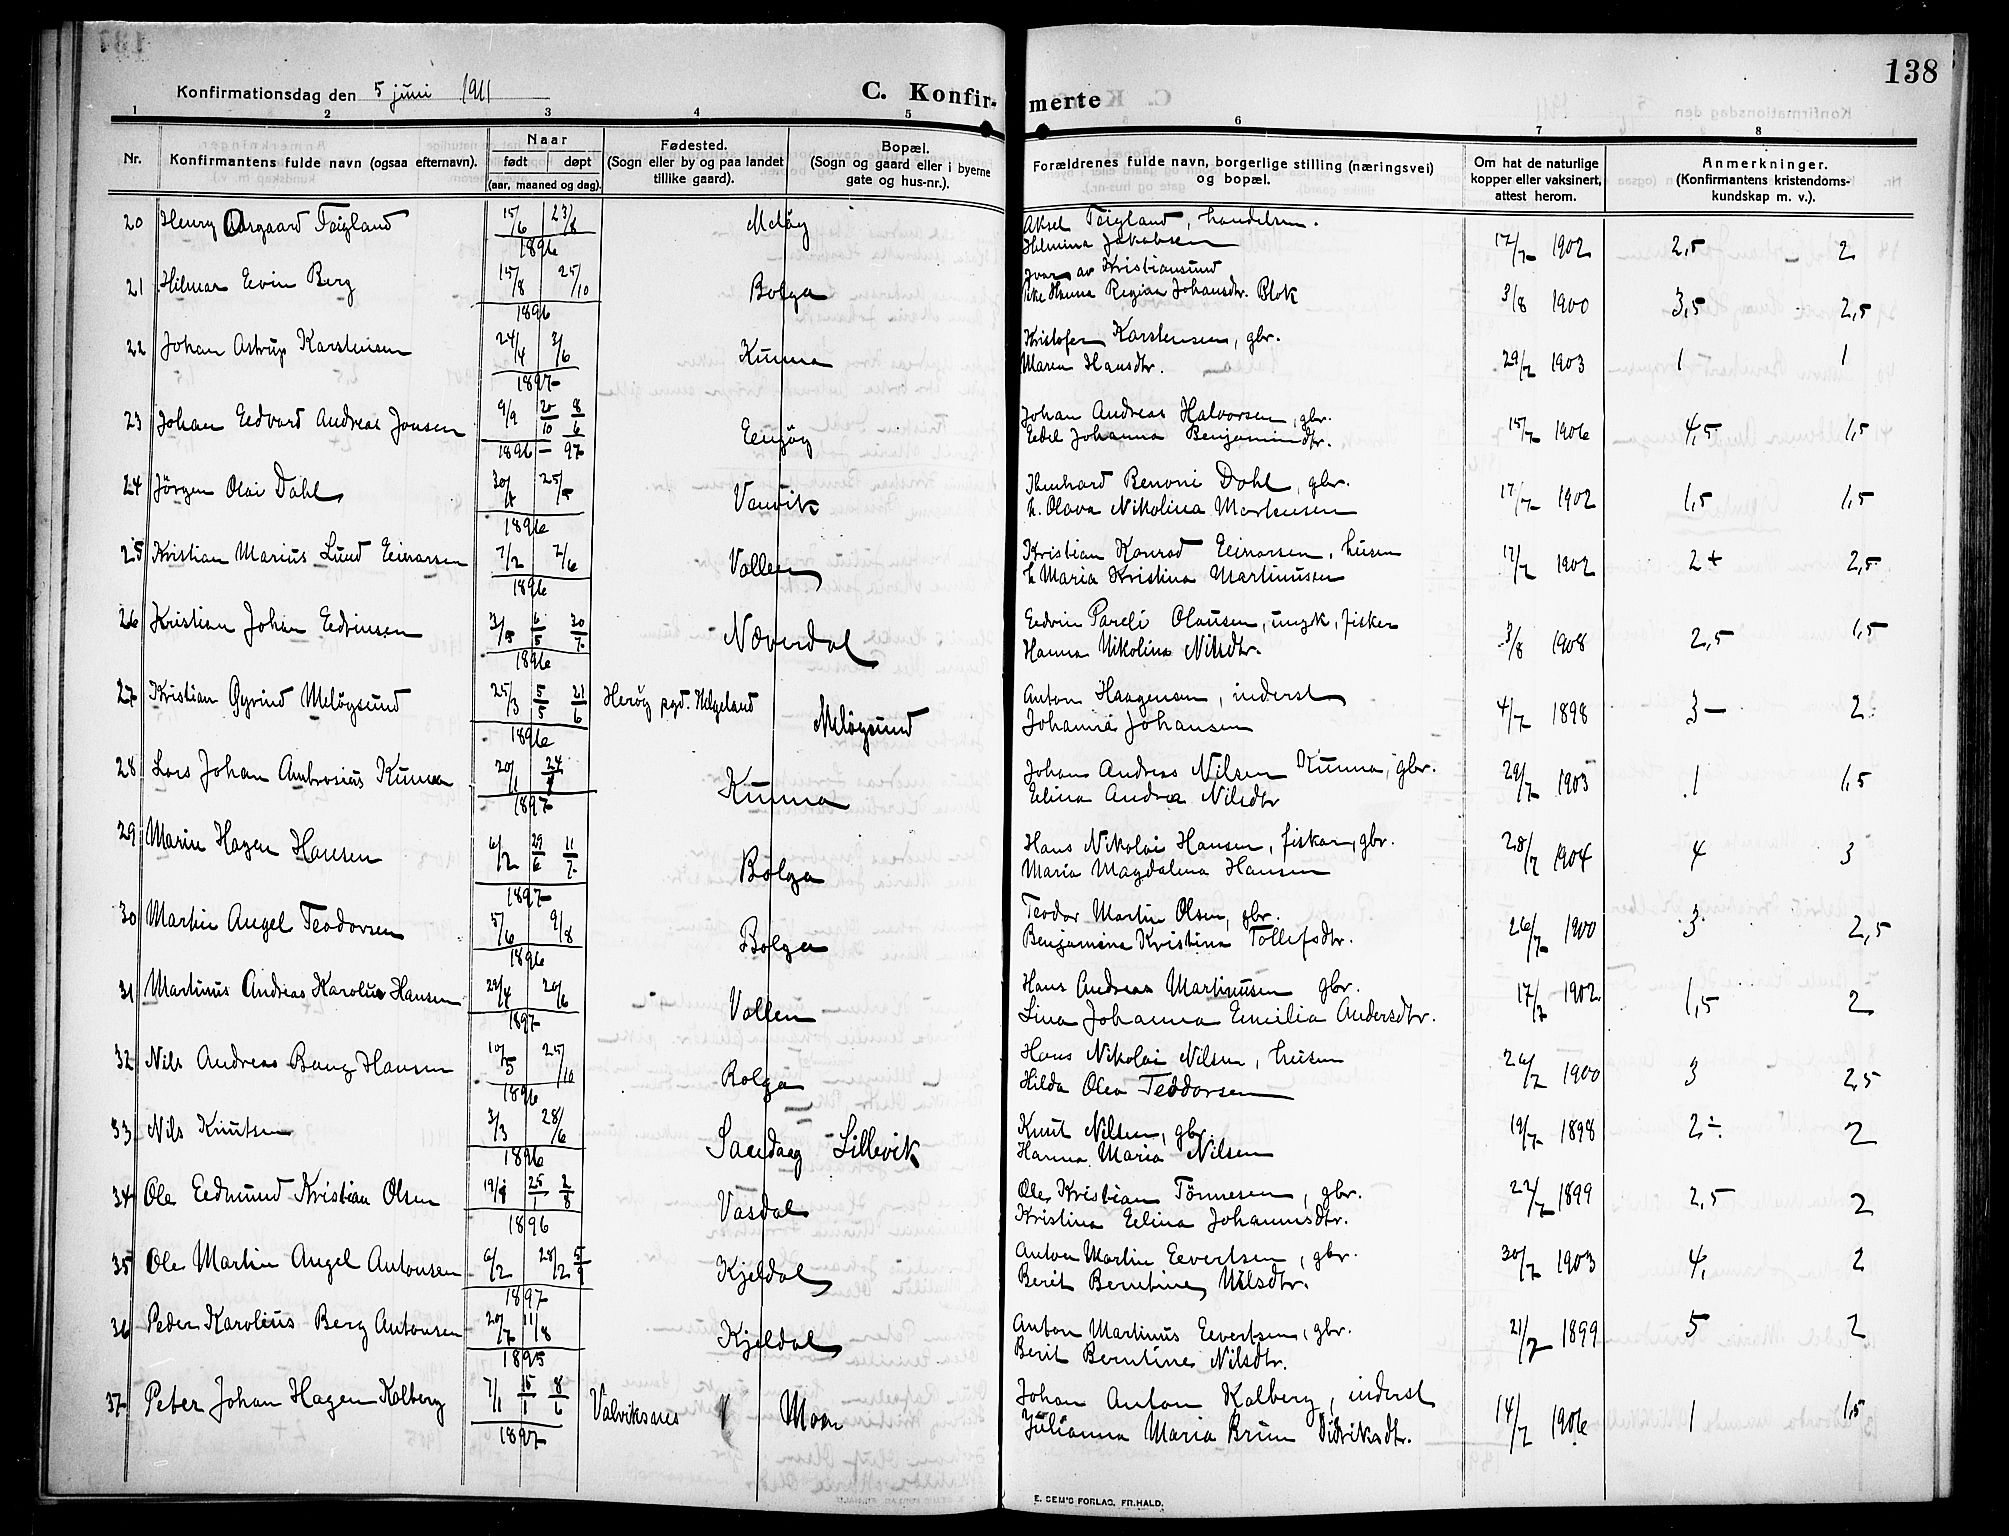 138
Konfirmationsdag den 5 juni 1911
C. Konfirmerte
1 2 3 4 5 6 7 8
Nr.
Konfirmantens fulde navn (ogsaa efternavn).
Naar
født døpt
(aar, maaned og dag).
Fødested.
(Sogn eller by og paa landet
tillike gaard).
Bopæl.
(Sogn og gaard eller i byerne
gate og hus-nr.).
Forældrenes fulde navn, borgerlige stilling (næringsvei)
og bopæl.
Om hat de naturlige
kopper eller vaksinert,
attest herom.
Anmerkninger.
(Konfirmantens kristendoms-
kundskap m. v.).
20 Henry Aargaard Feigland 15/6 23/8 1896 Meløy
Aksel Feigland, handelsm.
Helmina Jakobsen 17/7 1902 2,5 2
21 Hilmar Evin Berg 15/8 25/10 1896 Bolga
Ivar av Kristiansund
Pike Hanna Regina Johansdtr. Blok 3/8 1900 3,5 2,5
22 Johan Astrup Karstensen 24/4 3/6 1897 Kunna
Kristofer Karstensen, gbr.
Maren Hansdtr. 29/7 1903 1 1
23 Johan Edvard Andreas Jonsen 9/9 20/10 8/6 1896 – 97 Eenøy
Johan Andreas Halvorsen, gbr.
Edel Johanna Benjamindtr. 15/7 1906 4,5 1,5
24 Jörgen Olai Dahl 25/5 1896 Vassvik
Renoni Dahl, gbr.
h. Olava Nikolina Martensen 17/7 1902 1,5 1,5
25 Kristian Marius Lund Einarsen 7/2 7/6 1896 Vallen
Kristian Konrad Einarsen, husm
h Maria Kristina Martinusen 17/7 1902 2+ 2,5
26 Kristian Johan Edvinsen 3/5 6/5 30/7 1896 Næverdal
Edvin Pareli Olausen, ungk, fisker
Hanna Nikolina Nilsdtr. 3/8 1908 2,5 1,5
27 Kristian Øyvind Meløysund 25/3 5/5 21/6 1896 Herøy pgd. Helgeland Meløysund
Anton Haagensen, inderst
Johanna Johansen 4/7 1898 3– 2
28 Lars Johan Ambrosius Kunna 20/1 24/4 1897 Kunna
Johan Andreas Nilsen Kunna, gbr.
Elina Andrea Nilsdtr 29/7 1903 1 1,5
29 Marin Hagen Hansen 6/2 29/6 11/7 1897 Bolga
Hans Nikolai Hansen, fisker, gbr.
Maria Magdalena Hansen 28/7 1904 4 3
30 Martin Angel Teodorsen 5/6 9/8 1896 Bolga
Teodor Martin Olsen, gbr.
Benjamina Kristina Tollefsdtr. 26/7 1900 3 2,5
31 Martinus Andreas Karolius Hansen 29/4 20/6 1897 Vallen
Hans Andreas Martinusen gbr.
Lina Johanna Emilia Andersdtr. 17/7 1902 1,5 2
32 Nils Andreas Bang Hansen 10/5 25/10 1896 Bolga
Hans Nikolai Nilsen, husm
Hilda Olea Teodorsen 26/7 1900 3 2,5
33 Nils Knutsen 3/3 28/6 1896 Sandaag Lillevik
Knut Nilsen, gbr.
Hanna Maria Nilsen 19/7 1898 2÷ 2
34 Ole Edmund Kristian Olsen 25/1 2/8 1896 Vasdal
Ole Kristian Tönnesen, gbr.
Kristina Elina Johannsdtr. 22/7 1899 2,5 2
35 Ole Martin Angel Antonsen 6/2 28/2 5/9 1897 Kjeldal
Anton Martin Evertsen, gbr.
Berit Berntine Nilsdtr. 30/7 1903 4, 2
36 Peder Karolius Berg Antonsen 20/7 11/8 1895 Kjeldal
Anton Martinus Evertsen, gbr.
Berit Berntine Nilsdtr. 21/7 1899 5 2
37 Peter Johan Hagen Kalberg 7/1 15/1 8/6 1897 Valviksnes Moen
Johan Anton Kalberg, inderst
Julianna Maria Brun Didriksdtr. 14/7 1906 1 1,5
E. SEM'S FORLAG, FR.HALD.